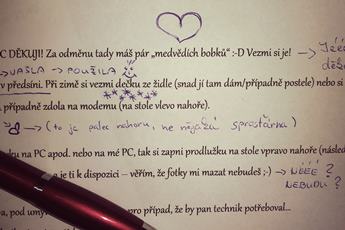 C DĚKUJI! Za odměnu tady máš pár „medvědích bobků" :-D Vezmi si je! → Jééé
děku
→ VAŠLA → POUŽILA
v předsíni. Při zimě si vezmi dečku ze židle (snad jí tam dám/případně postele) nebo si
případně zdola na modemu (na stole vlevo nahoře).
→ (to je palec nahoru, ne nějaká sprosťárna)
ku na PC apod. nebo na mé PC, tak si zapni prodlužku na stole vpravo nahoře (násled
a je ti k dispozici – věřím, že fotky mi mazat nebudeš ;-) → NÉÉÉ ?
NEBUDU ?
a, pod umyv
pro případ, že by pan technik potřeboval...